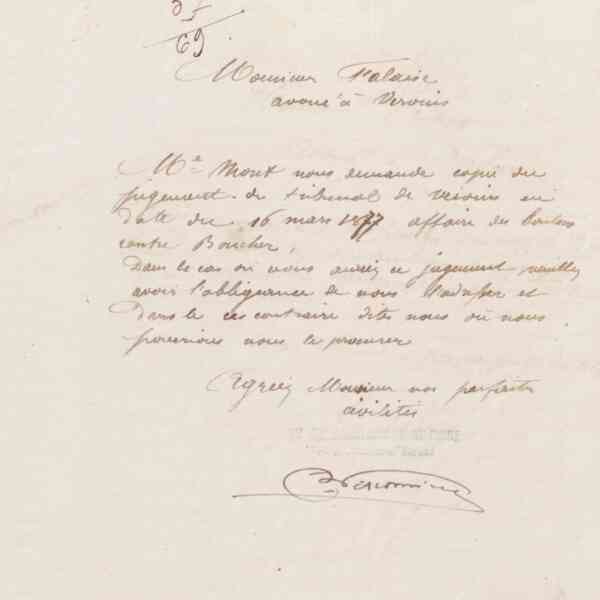 35
69
Monsieur Falaise
avoué à Vervins
Me Mont nous demande copie du
jugement du tribunal de Vervins en
date du 16 mars 1877 affaire des
contre Boucher,
Dans le cas où vous auriez ce jugement veuillez
avoir l'obligeance de nous l'adresser et
Dans le cas contraire dites nous où nous
pourrions nous le procurer
Agréez Monsieur nos parfaites
civilités